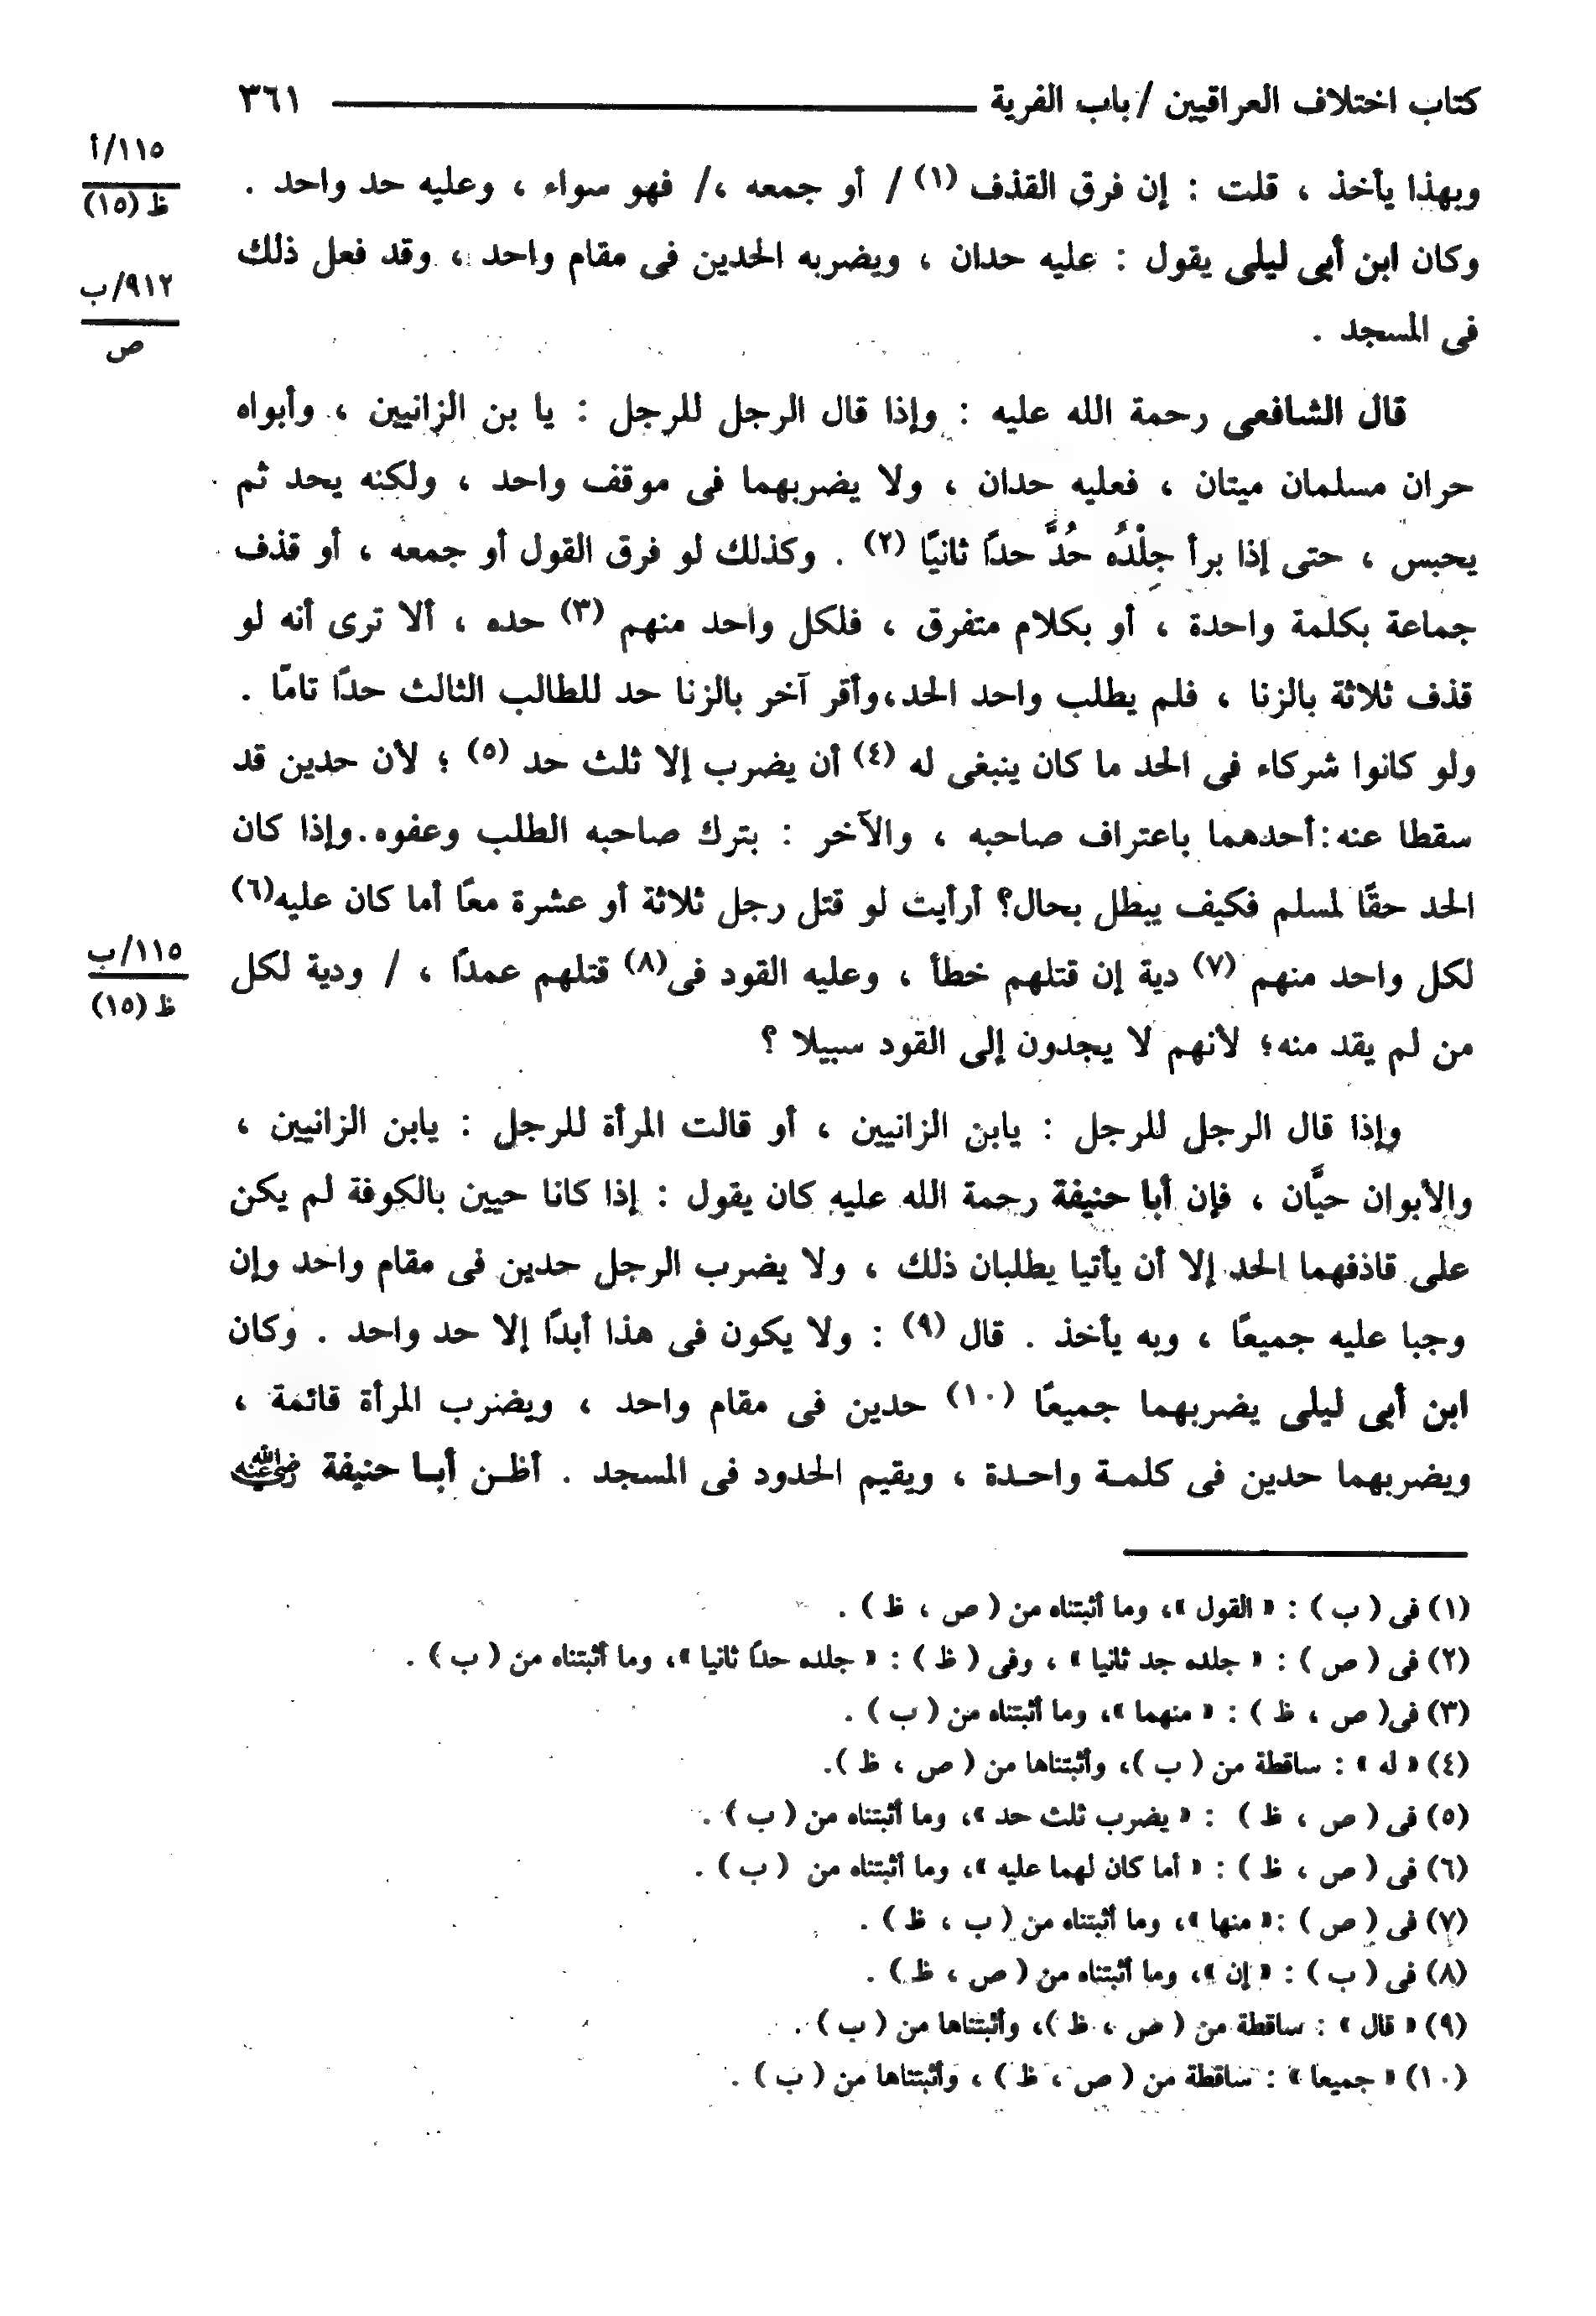 كتاب اختلاف العراقيين / باب الفرية ٣٦١
وبهذا يأخذ ، قلت : إن فرق القذف (١) / أو جمعه ،/ فهو سواء ، وعليه حد واحد .
١١٥/أ
ظ (١٥)
وكان ابن أبى ليلى يقول : عليه حدان ، ويضربه الحدين فى مقام واحد ، وقد فعل ذلك
٩١٢/ب
ص
فى المسجد .
قال الشافعى رحمة الله عليه : وإذا قال الرجل للرجل : يا بن الزانيين ، وأبواه
حران مسلمان ميتان ، فعليه حدان ، ولا يضربهما فى موقف واحد ، ولكنه يحد ثم
يحبس ، حتى إذا برأ جِلْدُه حُدَّ حدًا ثانيًا (٢) . وكذلك لو فرق القول أو جمعه ، أو قذف
جماعة بكلمة واحدة ، أو بكلام متفرق ، فلكل واحد منهم (٣) حده ، ألا ترى أنه لو
قذف ثلاثة بالزنا ، فلم يطلب واحد الحد،وأقر آخر بالزنا حد للطالب الثالث حدًا تامًا .
ولو كانوا شركاء فى الحد ما كان ينبغى له (٤) أن يضرب إلا ثلث حد (٥) ؛ لأن حدين قد
سقطا عنه:أحدهما باعتراف صاحبه ، والآخر : بترك صاحبه الطلب وعفوه.وإذا كان
الحد حقًا لمسلم فكيف يبطل بحال؟ أرأيت لو قتل رجل ثلاثة أو عشرة معًا أما كان عليه(٦)
لكل واحد منهم (٧) دية إن قتلهم خطأ ، وعليه القود فى(٨) قتلهم عمدًا ، / ودية لكل
١١٥/ب
ظ (١٥)
من لم يقد منه؛ لأنهم لا يجدون إلى القود سبيلا ؟
وإذا قال الرجل للرجل : يابن الزانيين ، أو قالت المرأة للرجل : يابن الزانيين ،
والأبوان حيَّان ، فإن أبا حنيفة رحمة الله عليه كان يقول : إذا كانا حيين بالكوفة لم يكن
على قاذفهما الحد إلا أن يأتيا يطلبان ذلك ، ولا يضرب الرجل حدين فى مقام واحد وإن
وجبا عليه جميعًا ، وبه يأخذ . قال (٩) : ولا يكون فى هذا أبدًا إلا حد واحد . وكان
ابن أبى ليلى يضربهما جميعًا (١٠) حدين فى مقام واحد ، ويضرب المرأة قائمة ،
ويضربهما حدين فى كلمة واحدة ، ويقيم الحدود فى المسجد . أظن أبا حنيفة رضي الله عنه
(١) فى ( ب ) : « القول »، وما أثبتناه من ( ص ، ظ ) .
(٢) فى ( ص ) : « جلده جد ثانيا » ، وفى ( ظ ) : « جلده حدًا ثانيا »، وما أثبتناه من ( ب ) .
(٣) فى( ص ، ظ ) : « منهما »، وما أثبتناه من ( ب ) .
(٤) « له » : ساقطة من ( ب )، وأثبتناها من ( ص ، ظ ).
(٥) فى ( ص ، ظ ) : « يضرب ثلث حد »، وما أثبتناه من ( ب ) .
(٦) فى ( ص ، ظ ) : « أما كان لهما عليه »، وما أثبتناه من ( ب ) .
(٧) فى ( ص ) :« منها »، وما أثبتناه من ( ب ، ظ ) .
(٨) فى ( ب ) : « إن »، وما أثبتناه من ( ص ، ظ ) .
(٩) « قال » : ساقطة من ( ص ، ظ )، وأثبتناها من ( ب ) .
(١٠) « جميعا » : ساقطة من ( ص ، ظ ) ، وأثبتناها من ( ب ) .